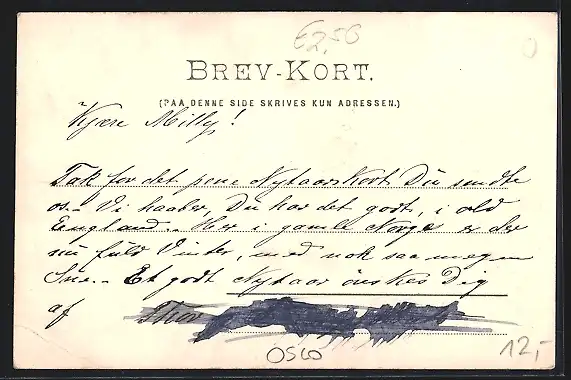 £2,50
BREV-KORT.
(PAA DENNE SIDE SKRIVES KUN ADRESSEN.)
Kjære Milly!
Tak for det pene Nytaarskort Du sendte
os.- Vi haaber, Du har det godt, i old
England.- Her i gamle Norge er der
nu fuld Vinter, med nok saa megen
Sne.- Et godt Nytaar ønskes Dig
af Thor
OSLO
12,-